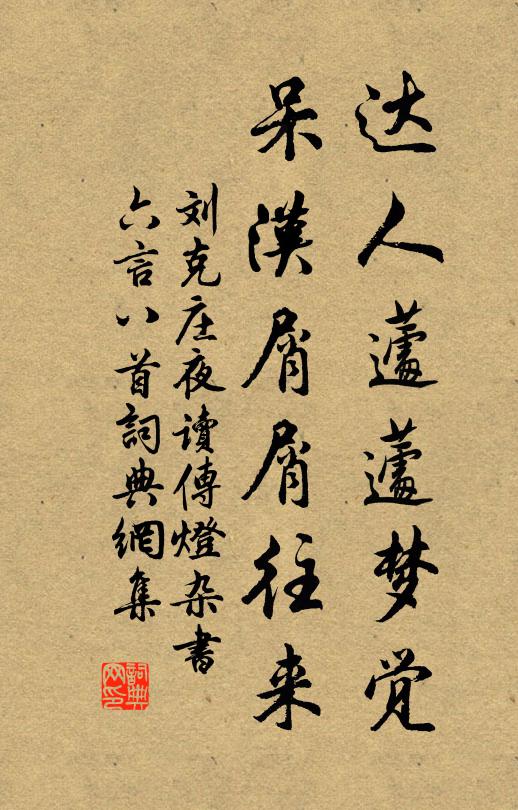 达人蘧蘧梦觉
呆漢屑屑往来
刘克庄夜讀傳燈杂書
六言八首詞典網集
詞典网印